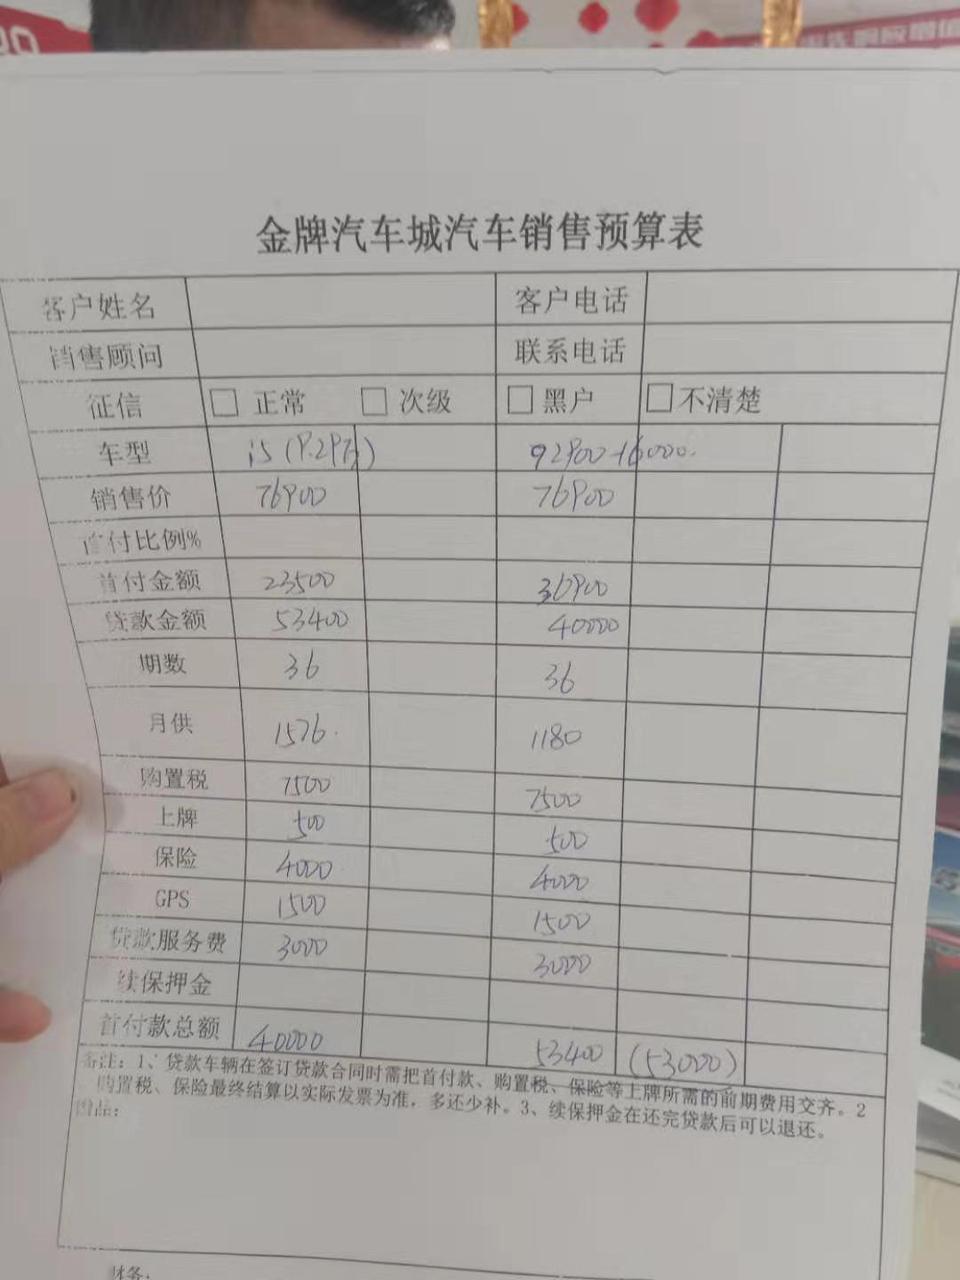 金牌汽车城汽车销售预算表
客户姓名 客户电话
销售顾问 联系电话
征信 □ 正常 □ 次级 □ 黑户 □ 不清楚
车型 i5 (9.29万) 92900-16000.
销售价 76900 76900
首付比例%
首付金额 23500 36900
贷款金额 53400 40000
期数 36 36
月供 1576. 1180
购置税 7500 7500
上牌 500 500
保险 4000 4000
GPS 1500 1500
贷款服务费 3000 3000
续保押金
首付款总额 40000 53400 (53000)
备注：1、贷款车辆在签订贷款合同时需把首付款、购置税、保险等上牌所需的前期费用交齐。2
购置税、保险最终结算以实际发票为准，多还少补。3、续保押金在还完贷款后可以退还。
赠品：
财务：